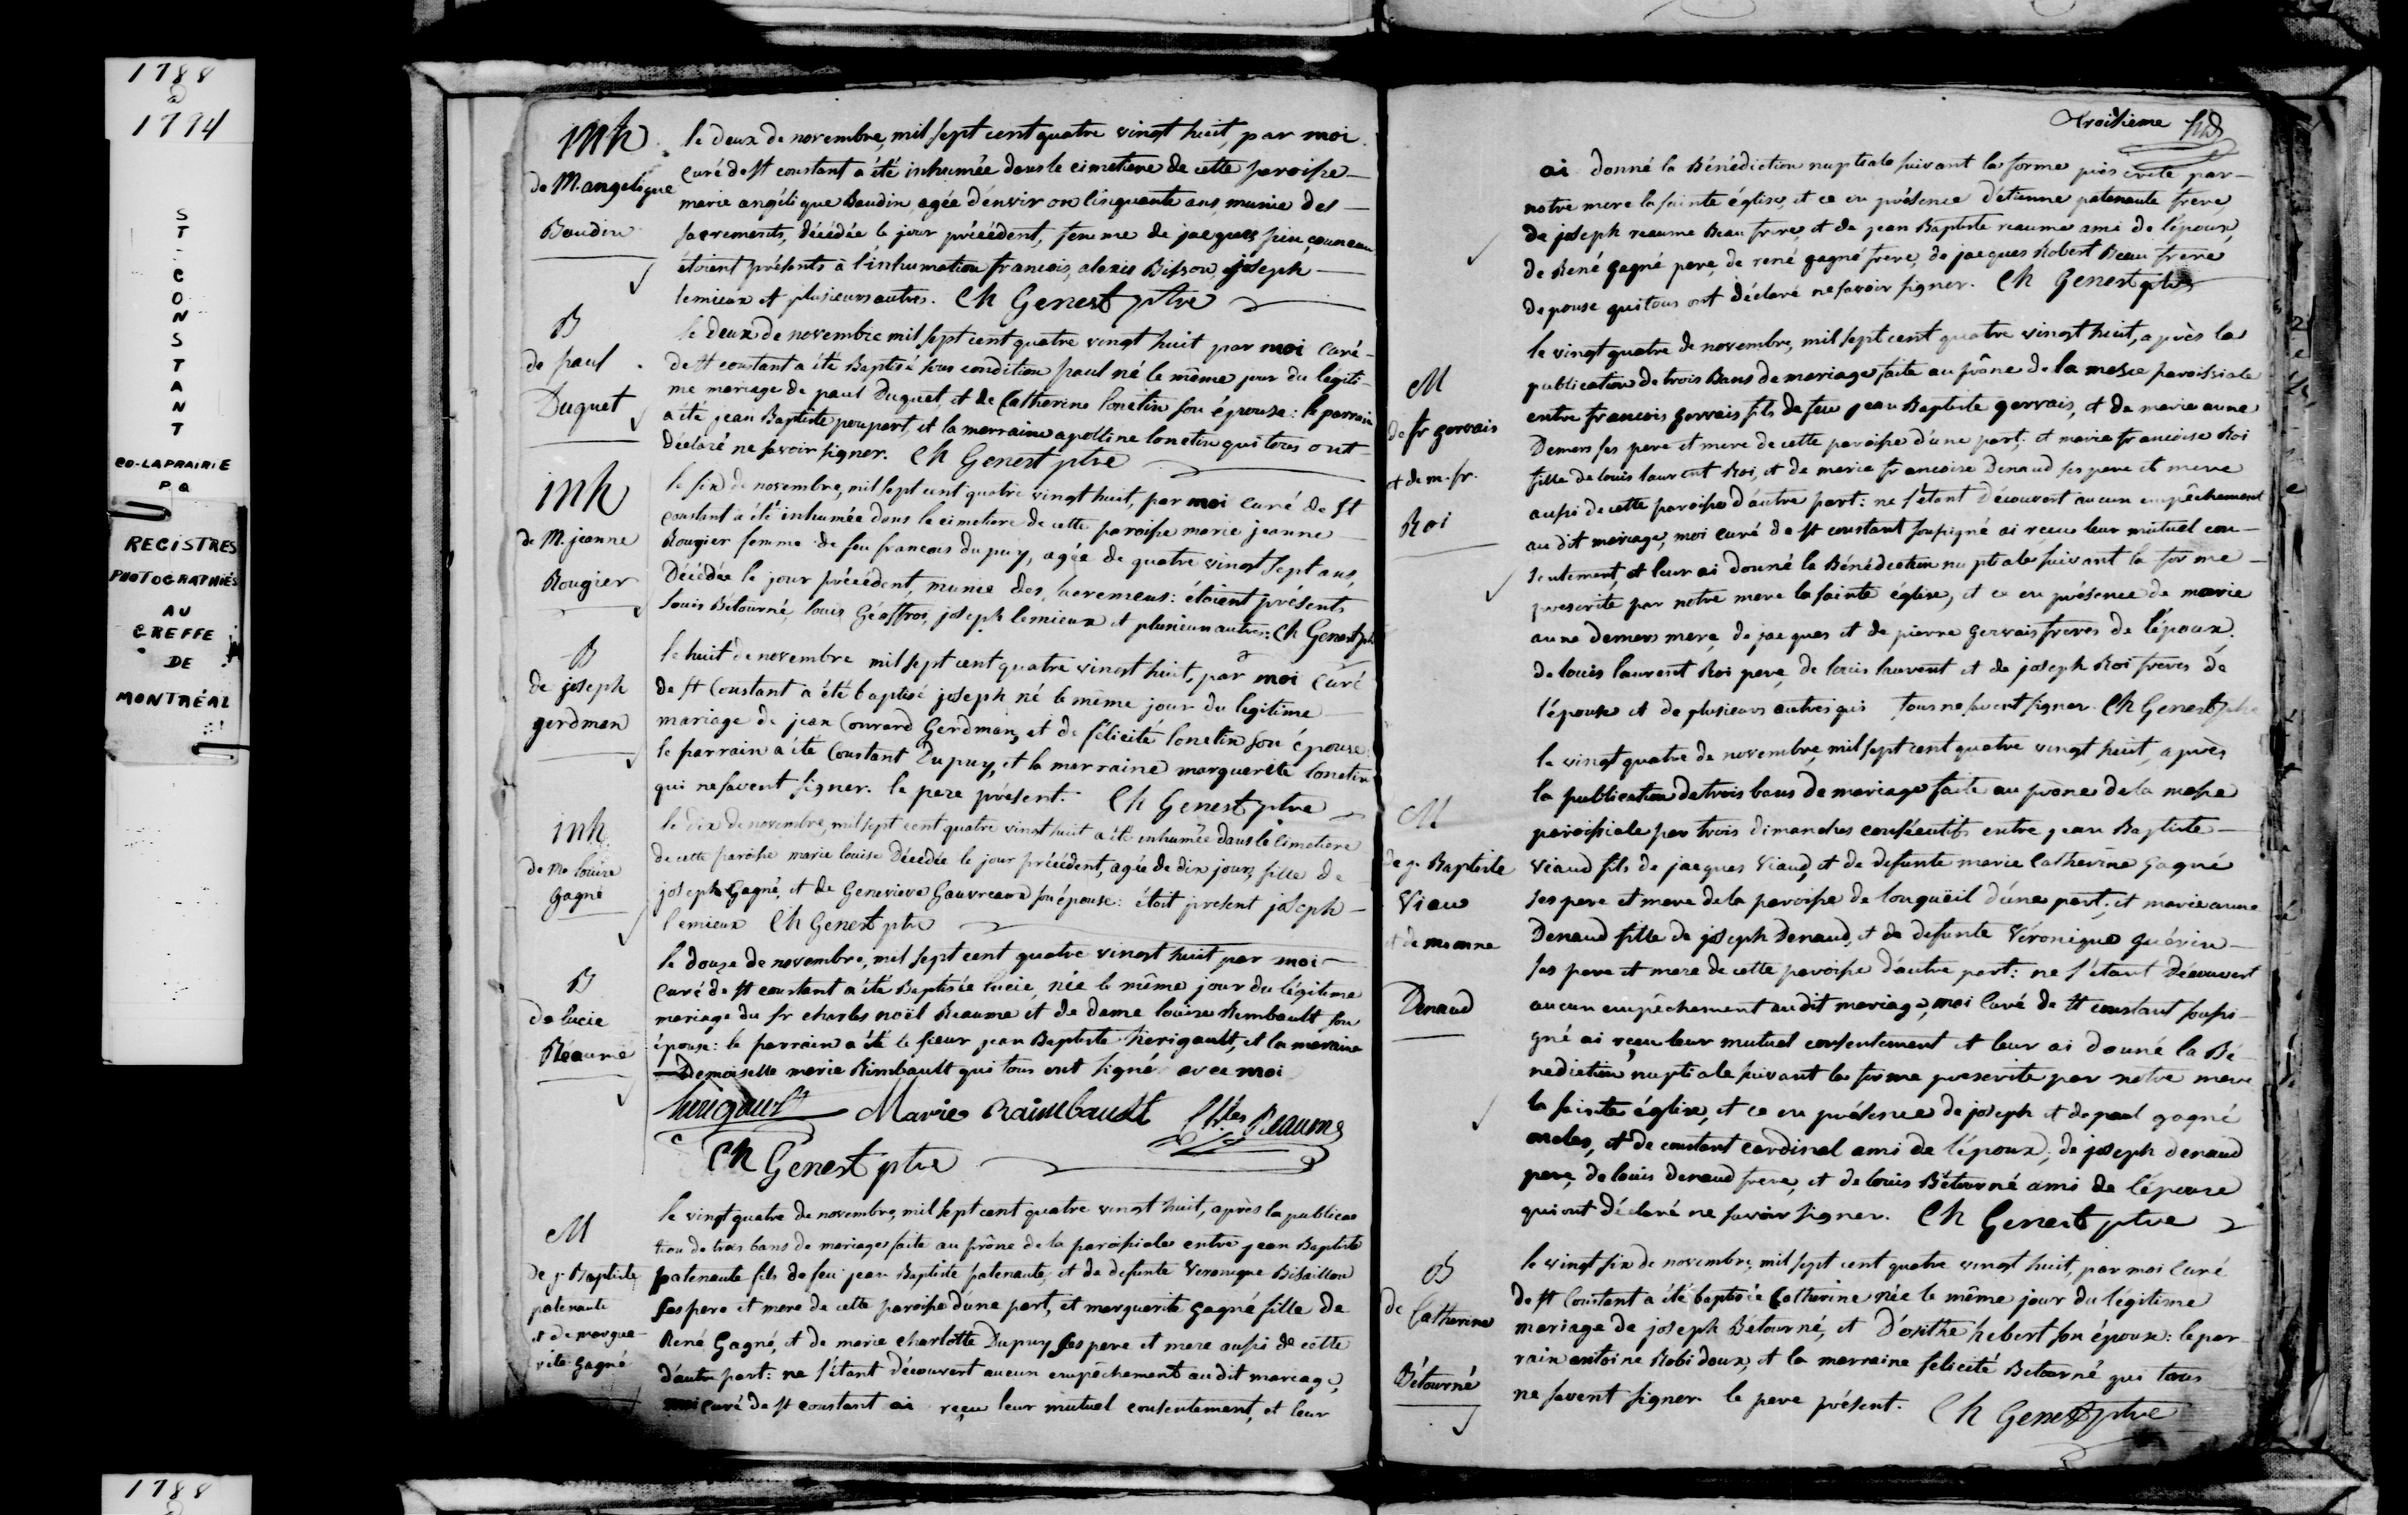 1788
à
1794
ST-CONSTANT
CO-LAPRAIRIE
P Q
REGISTRES
PHOTOGRAPHIÉS
AU
GREFFE
DE
MONTRÉAL
1788
inh
de M. angelique
Baudin
le deux de novembre, mil sept cent quatre vingt huit, par moi
curé de st constant a été inhumée dans le cimetiere de cette paroisse
marie angélique Baudin, agée d'environ cinquante ans, munie des
sacrements, décédée le jour précédent, femme de jacques
étoient présents à l'inhumation francois, alexis Bisson, joseph
lemieux et plusieurs autres. Ch Genest ptre
B
de paul
Duquet
le deux de novembre mil sept cent quatre vingt huit par moi curé
de st constant a été Baptisé sous condition paul né le même jour du légiti-
me mariage de paul Duquet, et de Catherine lonctin son épouse: le parrain
a été jean Baptiste poupart, et la marraine apolline lonctin qui tous ont
déclaré ne savoir signer. Ch Genest ptre
inh
de M. jeanne
Rougier
le six de novembre, mil sept cent quatre vingt huit, par moi curé de st
constant a été inhumée dans le cimetiere de cette paroisse marie jeanne
Rougier femme de feu francois dupuy, agée de quatre vingt sept ans,
Décédée le jour précédent, munie des sacremens: étoient présents
louis Bétourné, louis Géoffroi, joseph lemieux et plusieurs autres. Ch Genest ptre
B
de joseph
gerdman
le huit de novembre mil sept cent quatre vingt huit, par moi curé
de st Constant a été baptisé joseph né le même jour du legitime
mariage de jean Conrard Gerdman, et de félicité lonctin son épouse
le parrain a été Constant Dupuy, et la marraine marguerite lonctin
qui ne savent signer. le pere présent. Ch Genest ptre
inh
de Me louise
gagné
le dix de novembre, mil sept cent quatre vingt huit a été inhumée dans le cimetiere
de cette paroisse marie louise Décédée le jour précédent, agée de dix jours, fille de
joseph Gagné, et de Genevieve Gauvreaux son épouse: étoit present joseph
lemieux Ch Genest ptre
B
de lucie
Réaume
le douze de novembre, mil sept cent quatre vingt huit par moi
curé de st constant a été Baptisée lucie, née le même jour du légitime
mariage du sr charles noël Reaume et de dame louise Rimbault son
épouse: le parrain a été le sieur jean Baptiste herigault, et la maraine
Demoiselle marie Rimbault qui tous ont signé avec moi
herigault Marie Raimbault Chles Reaume
Ch Genest ptre
M
de j. Baptiste
patenaute
et de margue-
rite gagné
le vingt quatre de novembre, mil sept cent quatre vingt huit, après la publica
tion de trois bans de mariage faite au prône de la paroissiale entre jean Baptiste
patenaute fils de feu jean Baptiste patenaute, et de defunte Veronique Bisaillon
ses pere et mere de cette paroisse d'une part, et marguerite gagné fille de
René Gagné, et de marie charlotte Dupuy ses pere et mere aussi de cette
d'autre part: ne s'étant découvert aucun empêchement audit mariage,
moi curé de st constant ai reçu leur mutuel consentement, et leur
Troisieme
ai donné la Bénédiction nuptiale suivant la forme préscrite par
notre mere la sainte église, et ce en présence d'étienne patenaute frere,
de joseph reaume Beau frere, et de jean Baptiste reaume ami de l'époux,
de René gagné pere, de rené gagné frere, de jacques Robert Beau frere
depouse qui tous ont déclaré ne savoir signer. Ch Genest ptre
M
de fr gervais
et de m. fr.
Roi
le vingt quatre de novembre, mil sept cent quatre vingt huit, après la
publication de trois Bans de mariage faite au prône de la messe paroissiale
entre francois gervais fils de feu jean Baptiste gervais, et de marie anne
Demers ses pere et mere de cette paroisse d'une part, et marie francoise Roi
fille de louis laurent Roi, et de marie francoise Denaud ses pere et mere
aussi de cette paroisse d'autre part: ne s'étant Découvert aucun empêchement
au dit mariage, moi curé de st constant soussigné ai reçu leur mutuel con-
sentement, et leur ai donné la Bénédiction nuptiale suivant la forme
prescrite par notre mere la sainte église, et ce en présence de marie
anne demers mere, de jacques et de pierre gervais freres de l'époux,
de louis laurent Roi pere, de louis laurent et de joseph Roi freres de
l'épouse et de plusieurs autres qui tous ne savent signer. Ch Genest ptre
M
de j. Baptiste
Viau
et de m anne
Denaud
le vingt quatre de novembre, mil sept cent quatre vingt huit, après
la publication de trois bans de mariage faite au prône de la messe
paroissiale par trois dimanches consécutifs entre jean Baptiste
Viaud fils de jacques Viaud, et de defunte marie Catherine gagné
ses pere et mere de la paroisse de longuëil d'une part, et marie anne
Denaud fille de joseph Denaud, et de defunte Véronique guérin
ses pere et mere de cette paroisse d'autre part: ne s'étant Découvert
aucun empêchement audit mariage, moi Curé de st constant soussi-
gné ai reçu leur mutuel consentement et leur ai donné la Bé-
nediction nuptiale suivant la forme prescrite par notre mere
la sainte église, et ce en présence de joseph et de paul gagné
oncles, et de constant cardinal ami de l'époux, de joseph denaud
pere, de louis denaud frere, et de louis Bétourné ami de l'épouse
qui ont déclaré ne savoir signer. Ch Genest ptre
B
de Catherine
Bétourné
le vingt six de novembre, mil sept cent quatre vingt huit, par moi Curé
de st Constant a été baptisée Catherine née le même jour du légitime
mariage de joseph Bétourné, et D'osithe hebert son épouse: le par-
rain antoine Robidoux, et la marraine felicité Betourné qui tous
ne savent signer. le pere présent. Ch Genest ptre